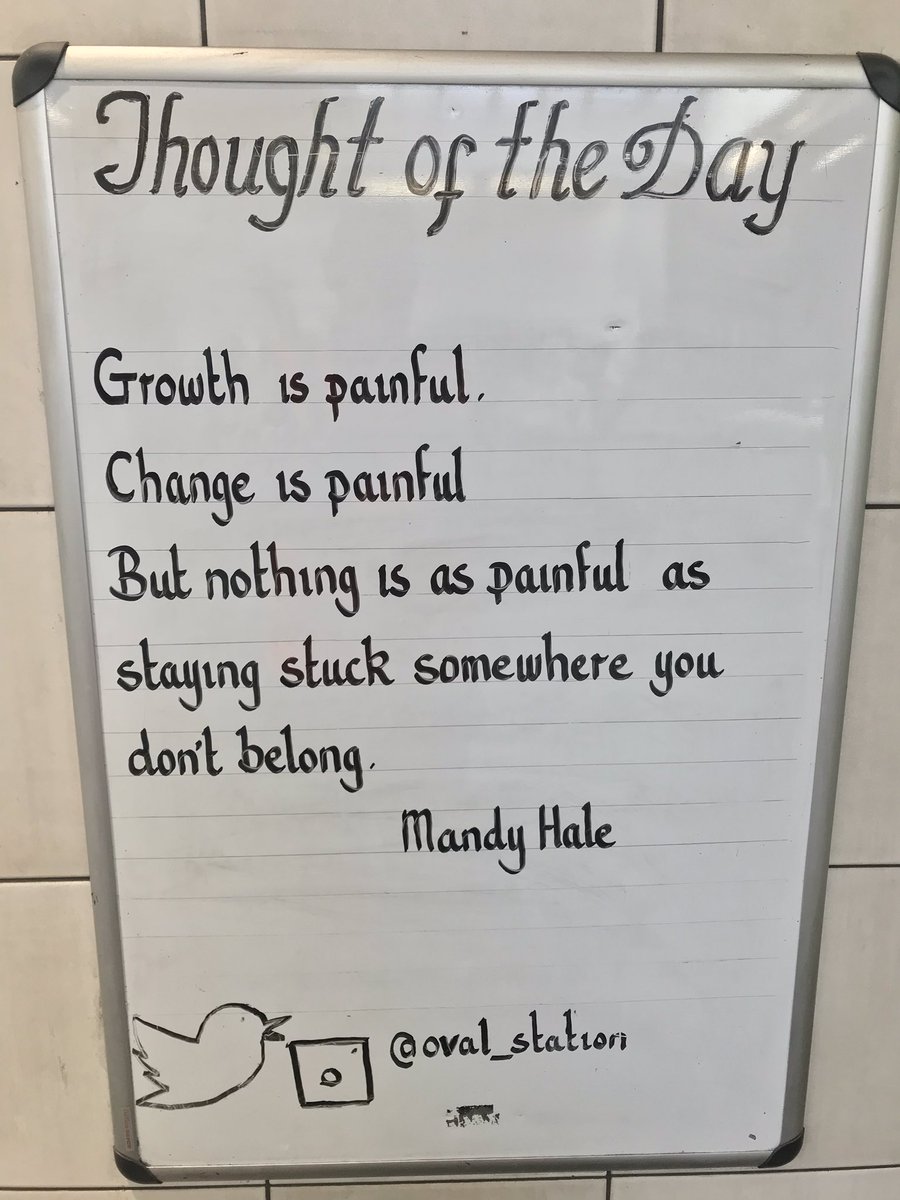 Thought of the Day
Growth is painful.
Change is painful
But nothing is as painful as
staying stuck somewhere you
don't belong.
Mandy Hale
@oval_station